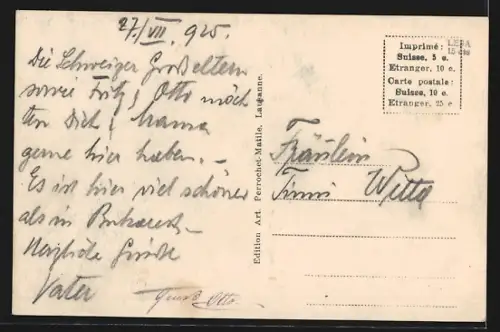 27./VII. 925.
Die Schweizer Großeltern
sowie Fritz, Otto möch
ten Dich & Mama
gerne hier haben. –
Es ist hier viel schöner
als in Bukarest –
Herzliche Grüße
Vater
Gruss Otto.
Edition Art. Perrochet-Matile, Lausanne.
Imprimé:
Suisse, 5 c.
Etranger, 10 c.
Carte postale:
Suisse, 10 c.
Etranger, 25 c
Fräulein
Witta